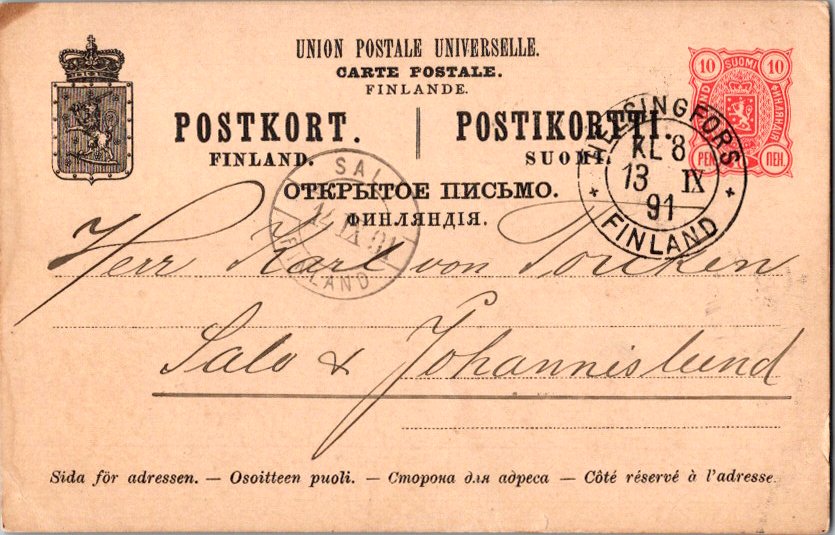 UNION POSTALE UNIVERSELLE.
CARTE POSTALE.
FINLANDE.
POSTKORT. POSTIKORTTI.
FINLAND. SUOMI.
ОТКРЫТОЕ ПИСЬМО.
ФИНЛЯНДІЯ.
10 SUOMI 10
ФИНЛЯНДІЯ
PEN ПЕН.
HELSINGFORS
KL 8
13 IX
91
FINLAND
SAL
IX 91
FINLAND
Herr Karl von
Salo & Johannislund
Sida för adressen. — Osoitteen puoli. — Сторона для адреса — Côté réservé à l'adresse.